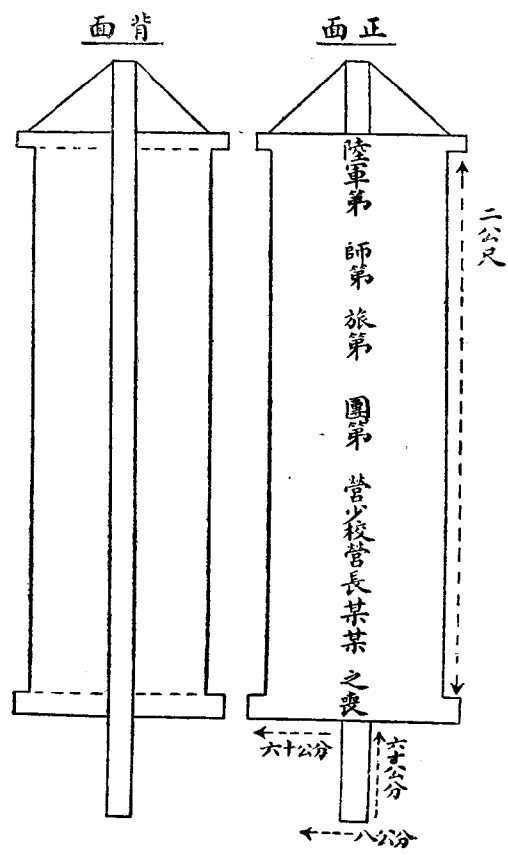 正面
陸軍第 師第 旅第 團第 營少校營長某某之喪
二公尺
六十公分
六十六公分
八公分
背面